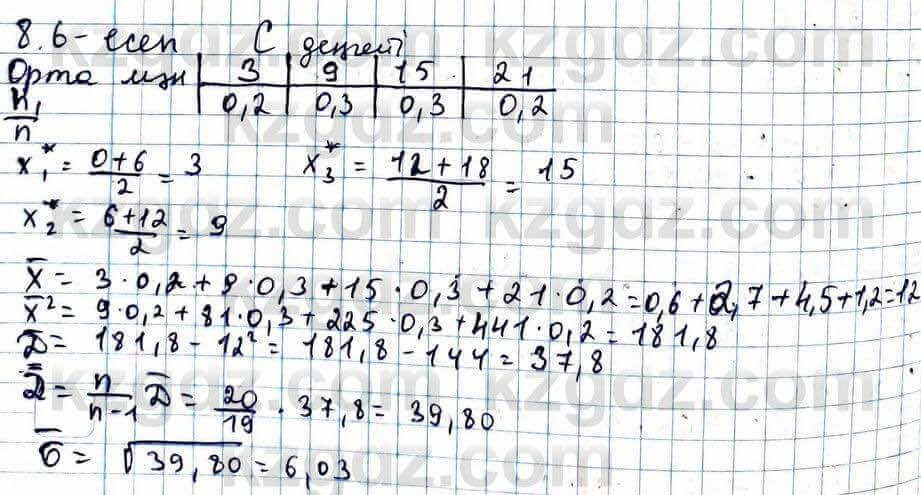 8.6-есеп С деңгейі
Орта мән 3 9 15 21
n₁/n 0,2 0,3 0,3 0,2
x₁* = (0+6)/2 = 3 x₃* = (12+18)/2 = 15
x₂* = (6+12)/2 = 9
x̄ = 3·0,2+9·0,3+15·0,3+21·0,2=0,6+2,7+4,5+1,2=12
x̄² = 9·0,2+81·0,3+225·0,3+441·0,2=181,8
D̄ = 181,8-12²=181,8-144=37,8
D̄ = n/(n-1) D̄ = 20/19 · 37,8 = 39,80
σ̄ = √39,80 = 6,03
kzgdz.com